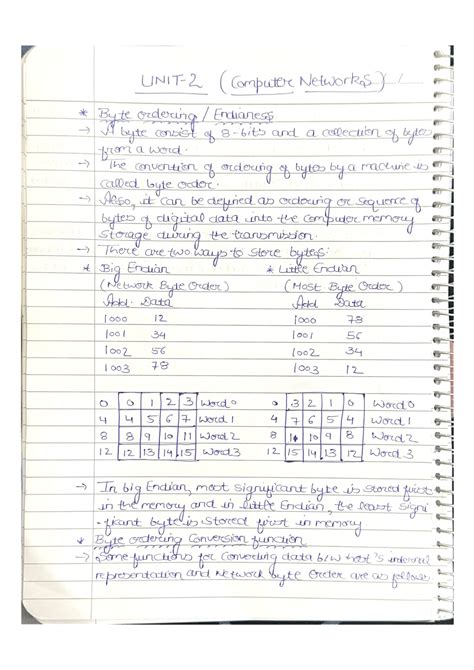 UNIT-2 (Computer Networks)
* Byte ordering / Endianess
→ A byte consist of 8-bits and a collection of bytes
from a word.
→ The convention of ordering of bytes by a machine is
called byte order.
→ Also, it can be defined as ordering or sequence of
bytes of digital data into the computer memory
storage during the transmission.
→ There are two ways to store bytes:
* Big Endian * Little Endian
(Network Byte Order) (Most Byte Order)
Add. Data Add Data
1000 12 1000 78
1001 34 1001 56
1002 56 1002 34
1003 78 1003 12
0 0 1 2 3 Word 0 0 3 2 1 0 Word 0
4 4 5 6 7 Word 1 4 7 6 5 4 Word 1
8 8 9 10 11 Word 2 8 11 10 9 8 Word 2
12 12 13 14 15 Word 3 12 15 14 13 12 Word 3
→ In big Endian, most significant byte is stored first
in the memory and in little Endian, the least signi
-ficant byte is stored first in memory
* Byte ordering Conversion function
→ Some functions for Converting data b/w host's internal
representation and Network byte Order are as follows